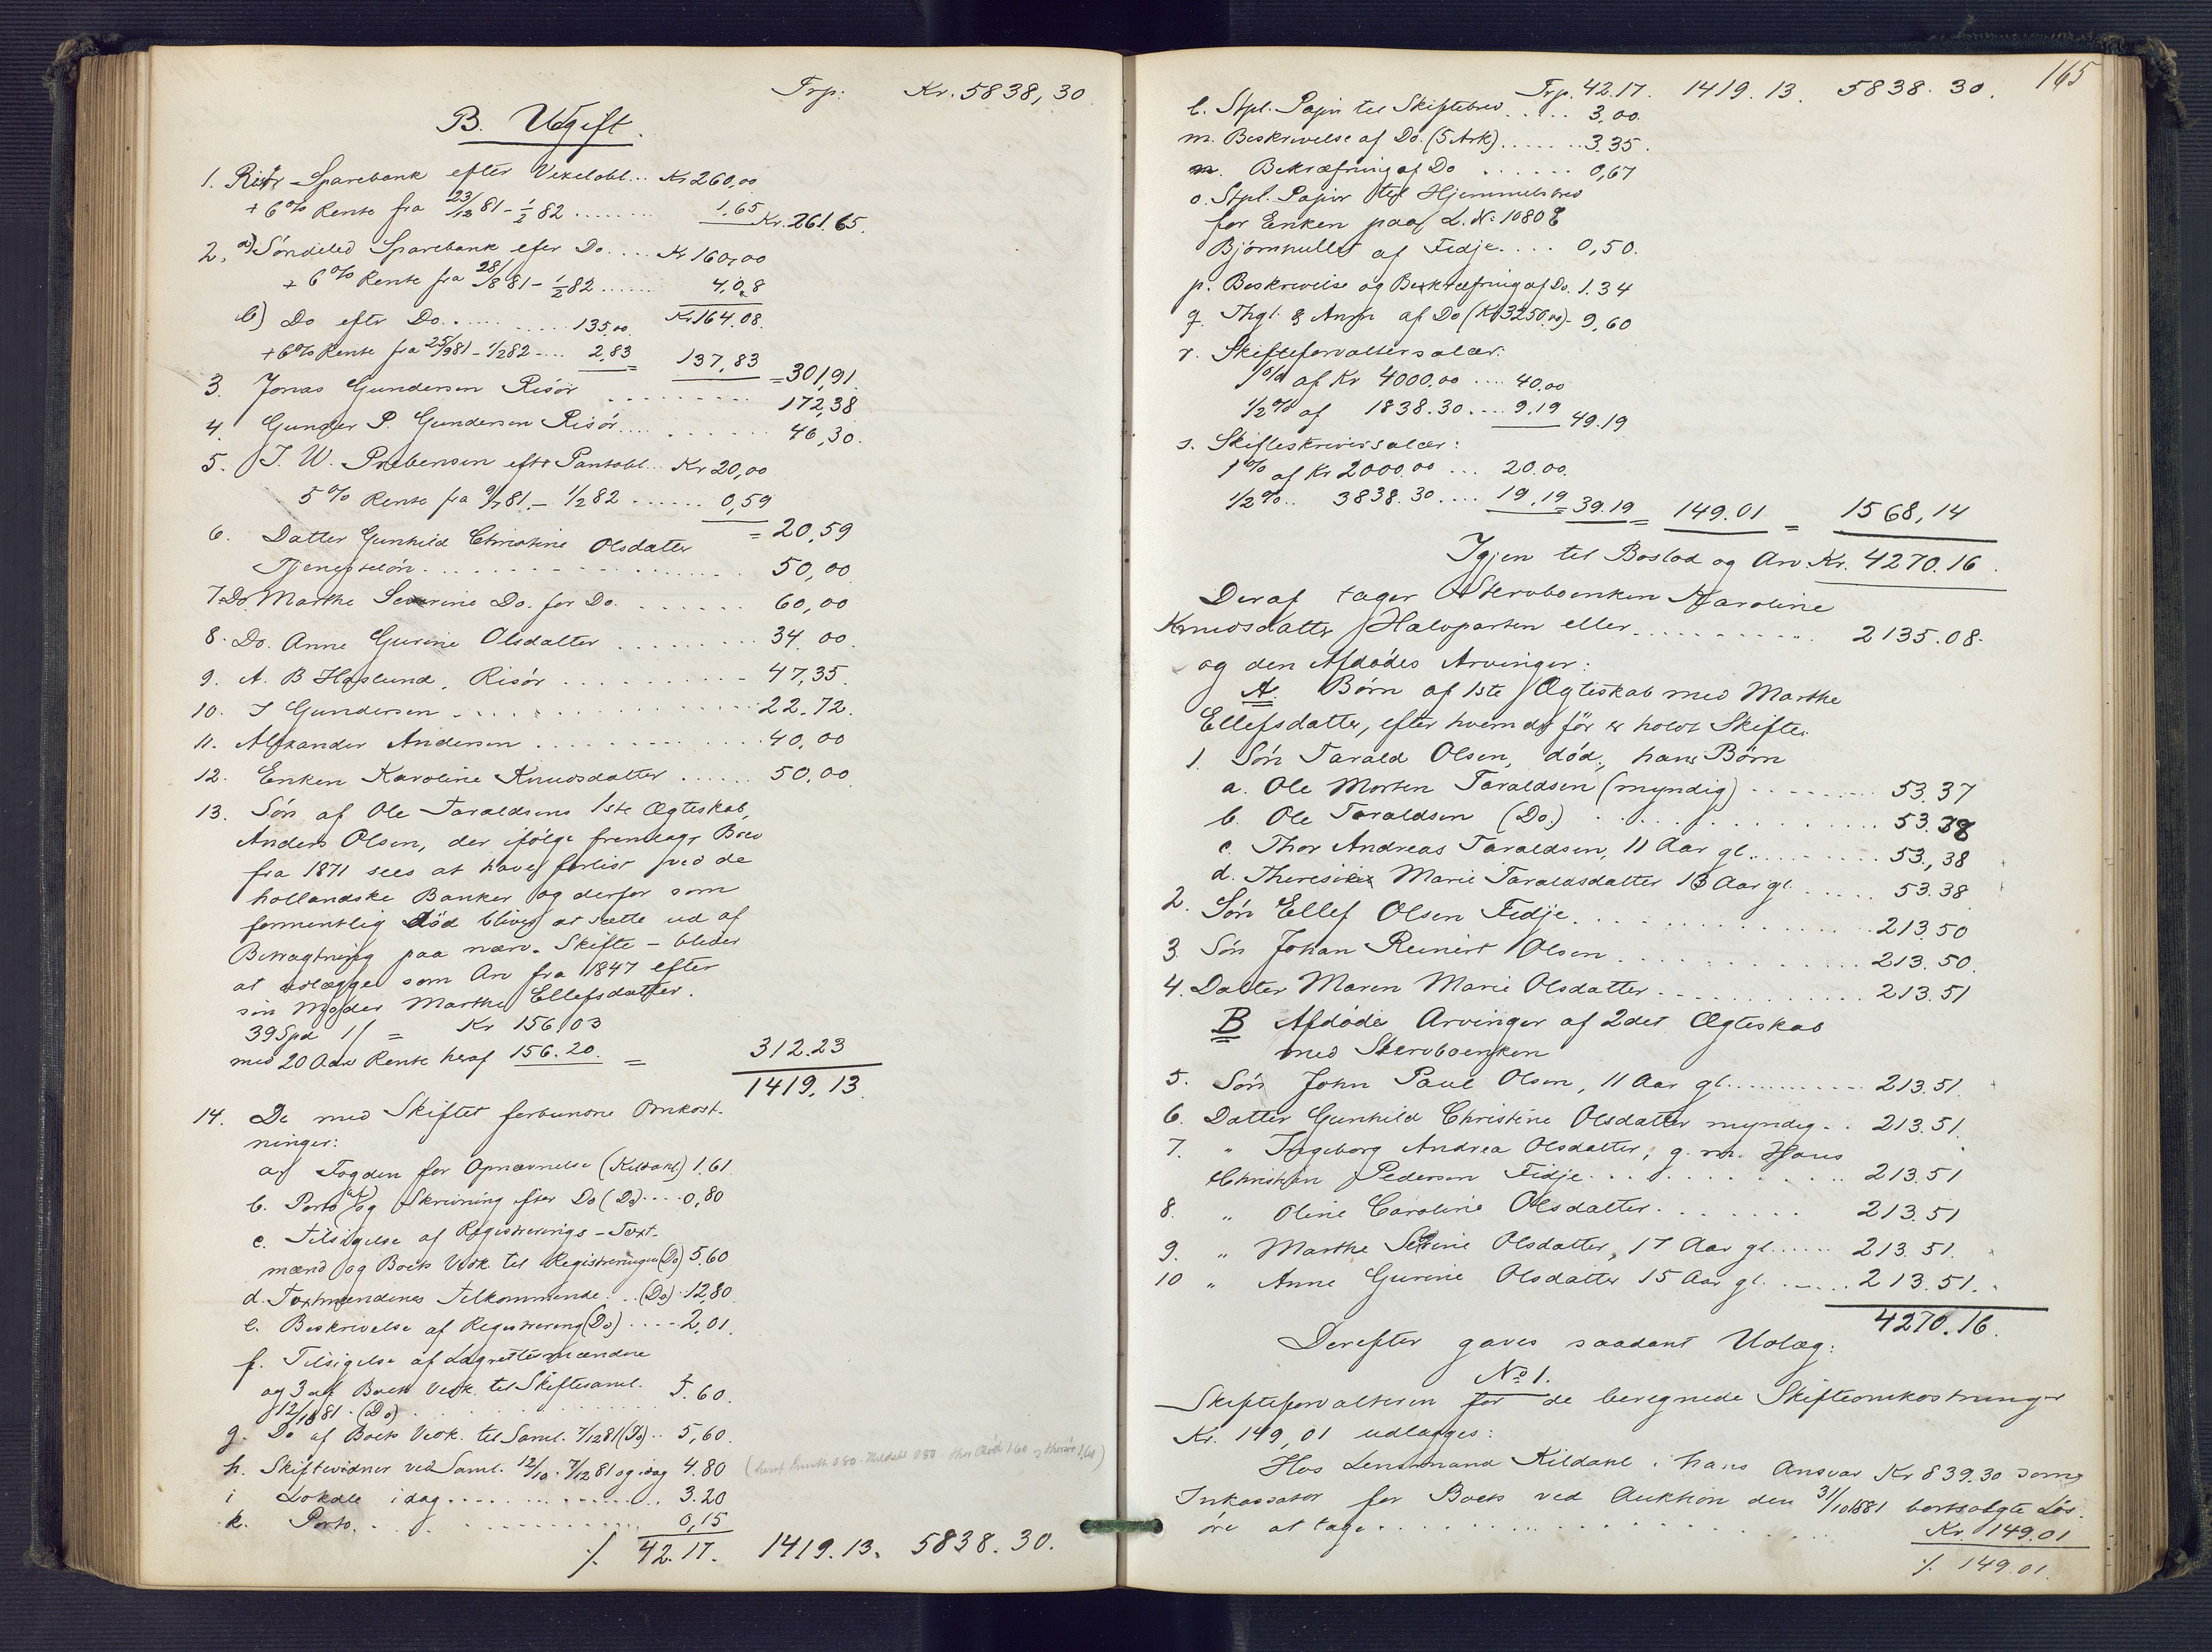 Trp: Kr. 5838,30
B. Udgift.
1. Risør Sparebank efter Vexelobl... Kr 260,00
+ 6% Rente fra 23/12 81 - 1/2 82 ........ 1.65 Kr. 261,65.
2. a) Søndeled Sparebank efter Do .... Kr 160,00
+ 6% Rente fra 28/8 81 - 1/2 82 ...... 4,08
Kr 164.08.
b) Do efter Do. .... 135,00
+ 6% Rente fra 25/9 81 - 1/2 82 .... 2,83 = 137,83 = 301,91.
3. Jonas Gundersen Risör ......... 172,38
4. Gunder P. Gundersen Risör ......... 46,30.
5. J. W. Prebensen eftr Pantobl... Kr 20,00
5% Rente fra 9/7 81. - 1/2 82 ...... 0,59
= 20,59
6. Datter Gunhild Christine Olsdatter
Tjenesteløn ............ 50,00
7. Do Marthe Severine Do. for Do. ...... 60,00
8. Do. Anne Gurine Olsdatter ......... 34,00.
9. A. B Haslund, Risör ......... 47,35.
10. J Gundersen ......... 22.72.
11. Alexander Andersen ......... 40,00
12. Enken Karoline Knudsdatter ...... 50.00.
13. Søn af Ole Taraldsens 1ste Ægteskab,
Anders Olsen, der ifølge fremlagt Brev
fra 1871 sees at have forlist ved de
hollandske Banker og derfor som
formentlig død bliver at sætte ud af
Betragtning paa nærv. Skifte - bliver
at udlægge som Arv fra 1847 efter
sin Moder Marthe Ellefsdatter.
39 Spd 1/ = Kr 156,03
med 20 Aars Rente heraf 156.20. = 312.23
1419,13.
14. De med Skiftet forbundne Omkost-
ninger:
a) Fogden for Opnævnelse (Kildahl) 1.61.
b. Porto og Skrivning efter Do (Do) .... 0,80
c. Tilsigelse af Registrerings-Taxt-
mænd og Boets Vedk. til Registreringen (Do) 5.60
d. Taxtmændenes Tilkommende ... (Do) 12,80.
e. Beskrivelse af Registrering (Do) .... 2,01.
f. Tilsigelse af Lagrettemændene
og 3 af Boets Vedk. til Skiftesaml.
12/10 81. (Do) ......... 5.60.
g. Do af Boets Vedk. til Saml. 7/12 81 (Do) .. 5,60.
h. Skiftevidner ved Saml. 12/10. 7/12 81 og idag 4.80
i Lokale idag ............ 3.20
k. Porto. ............ 0,15
./. 42.17. 1419.13. 5838.30.
165
Trp. 42.17. 1419.13. 5838.30.
l. Stpl. Papir til Skiftebrev ..... 3,00.
m. Beskrivelse af Do. (5 Ark) ...... 3.35.
n. Bekræfning af Do ...... 0,67
o. Stpl. Papir til Hjemmelsbrev
for Enken paa L. No 1080 8
Bjørnhullet af Fidje .... 0,50.
p. Beskrivelse og Bekræfning af Do. 1.34
q. Thgl. & Anm af Do (Kr 3250,00) - 9,60
r. Skifteforvaltersalær:
1% af Kr 4000.00 .... 40,00
1/2% af 1838.30 .... 9.19 49.19
s. Skifteskriversalær:
1% af Kr 2000.00 ... 20.00.
1/2% .. 3838.30 .... 19,19 = 39.19 = 149.01 = 1568,14
Igjen til Boslod og Arv Kr. 4270.16.
Deraf tager Stervboenken Karoline
Knudsdatter Halvparten eller .......... 2135.08.
og den Afdødes Arvinger:
A. Børn af 1ste Ægteskab med Marthe
Ellefsdatter, efter hvem der før er holdt Skifte.
1. Søn Tarald Olsen, død, hans Børn
a. Ole Morten Taraldsen (myndig) ........ 53.37
b. Ole Taraldsen (Do.) ............ 53.38
c. Thor Andreas Taraldsen, 11 Aar gl. ........ 53,38
d. Theresie Marie Taraldsdatter 13 Aar gl. ..... 53.38
2. Søn Ellef Olsen Fidje ............ 213.50
3. Søn Johan Reinert Olsen ............ 213.50.
4. Datter Maren Marie Olsdatter ............ 213.51
B Afdødes Arvinger af 2det Ægteskab
med Stervboenken
5. Søn John Paul Olsen, 11 Aar gl. .......... 213.51.
6. Datter Gunhild Christine Olsdatter myndig. .. 213.51.
7. " Ingeborg Andrea Olsdatter, g. m. Hans
Christian Pedersen Fidje ............ 213.51
8. " Oline Caroline Olsdatter ........ 213.51
9. " Marthe Severine Olsdatter, 17 Aar gl. ...... 213.51.
10 " Anne Gurine Olsdatter 15 Aar gl. ..... 213.51.
4270.16.
Derefter gaves saadant Udlæg:
No 1.
Skifteforvalteren for de beregnede Skifteomkostninger
Kr. 149,01 udlægges:
Hos Lensmand Kildahl i hans Ansvar Kr 839.30 som
Inkassator for Boets ved Auktion den 31/10 1881 bortsolgte Løs-
øre at tage ............ Kr. 149.01
./. 149.01.